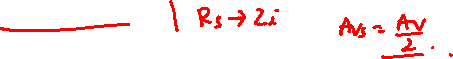 Rs → Zi Avs = Av/2.